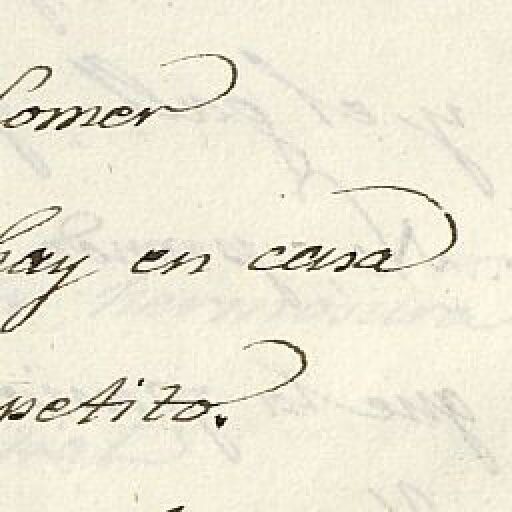 Comer
hay en casa
petito.